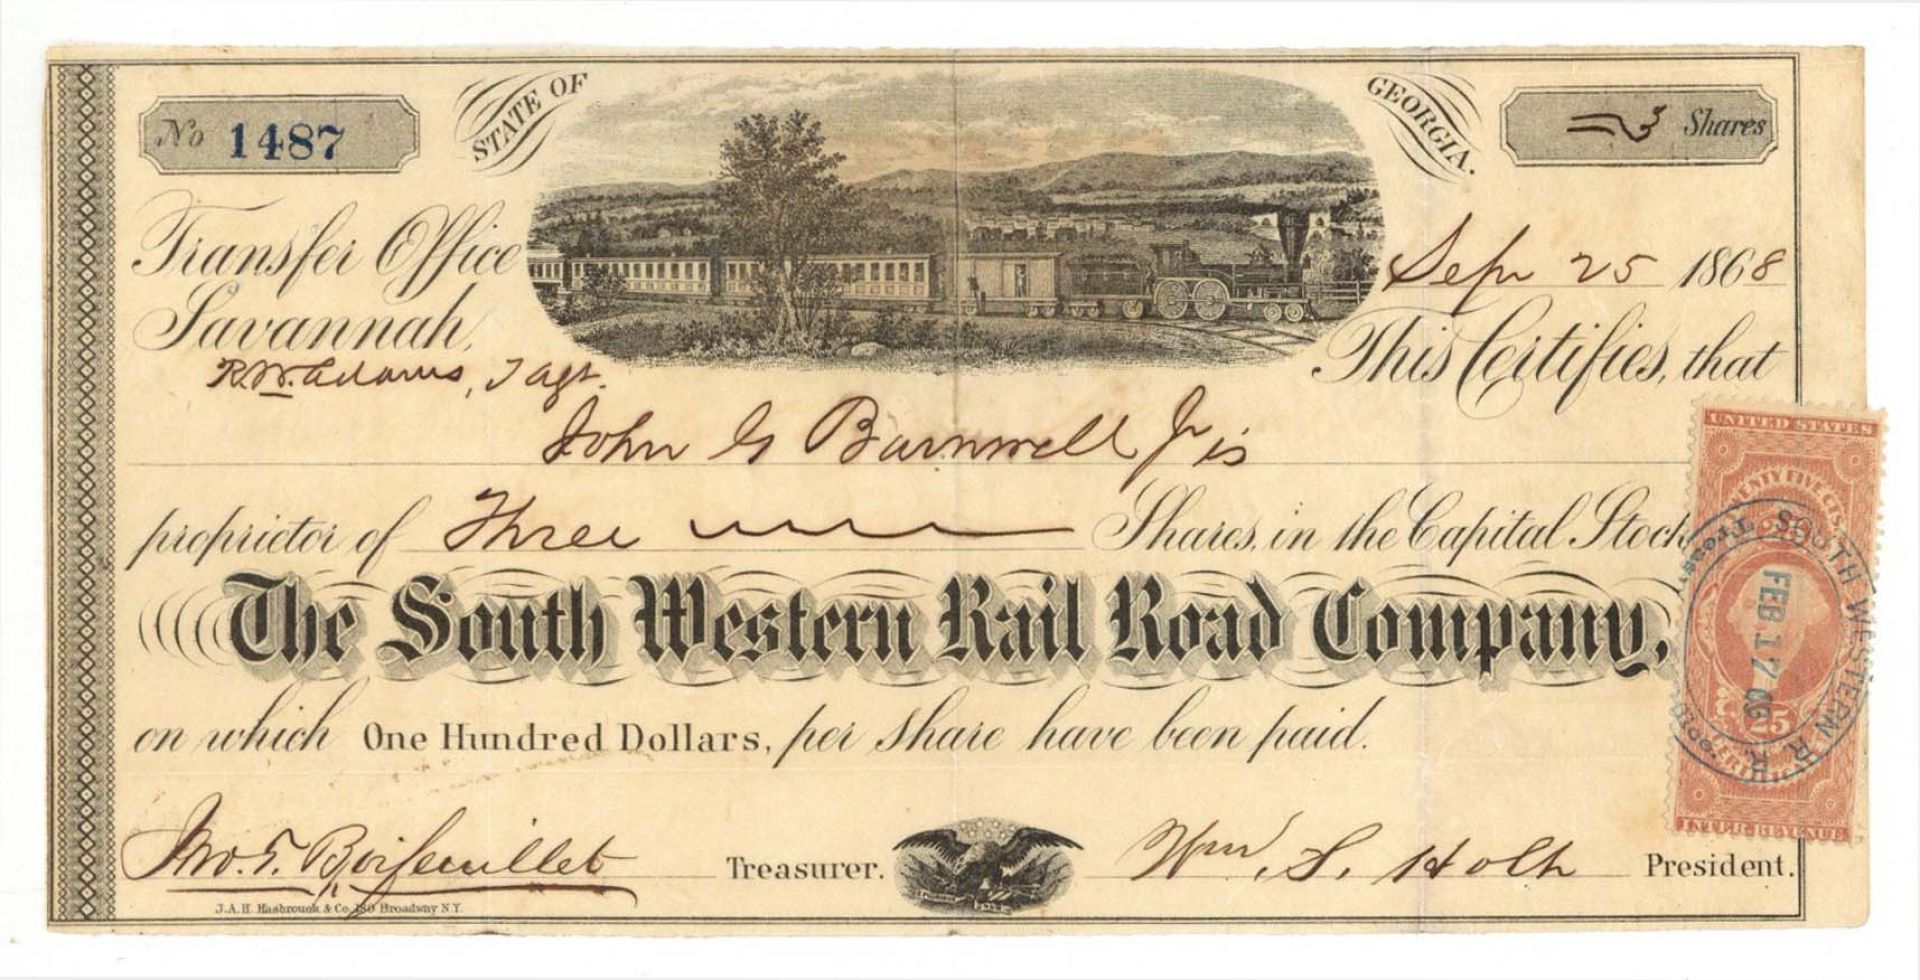 No 1487
STATE OF
GEORGIA.
3 Shares
Transfer Office
Savannah,
R. W. Adams, T agt.
Sepr 25 1868
This Certifies, that
John G Barnwell Jr is
proprietor of Three Shares, in the Capital Stock
The South Western Rail Road Company,
on which One Hundred Dollars, per share have been paid.
Jno. T. Boifeuillet Treasurer.
Wm. S. Holt President.
J.A.H. Hasbrouck & Co. 130 Broadway N.Y.
UNITED STATES
TWENTY FIVE CTS.
SOUTH WESTERN R. R.
FEB 17 69
25
INTER. REVENUE